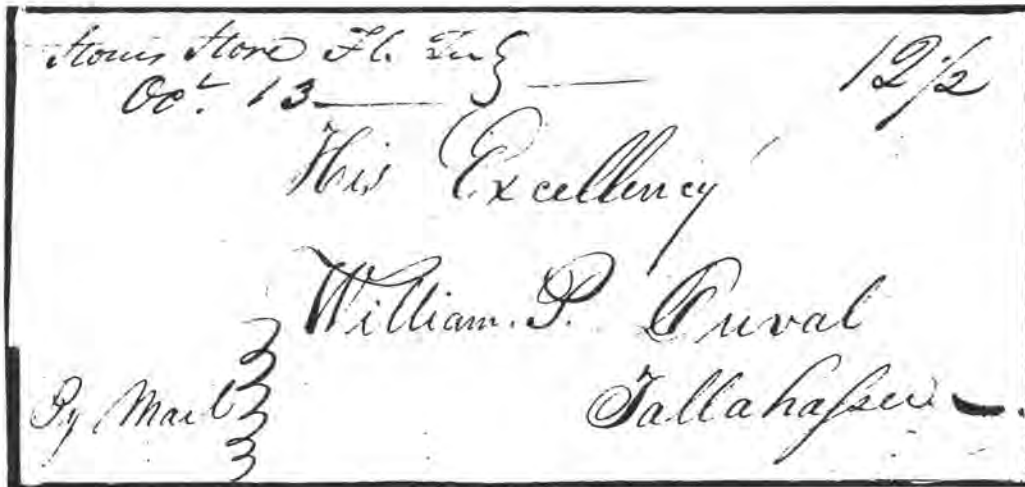 Store Fl.
Oct. 13
12 1/2
His Excellency
William. P. Duval
Tallahassee
By Mail